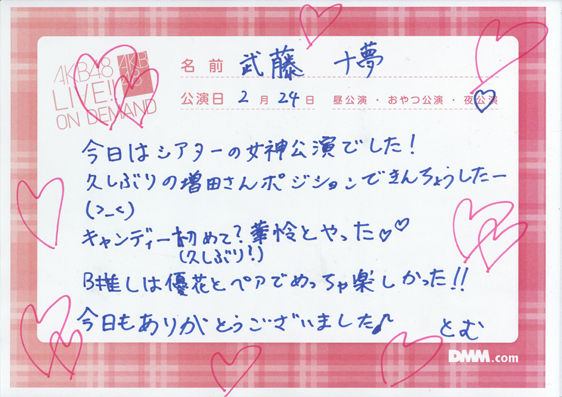 AKB48
LIVE!!
ON DEMAND
AKB
48
名前 武藤 十夢
公演日 2月24日 昼公演・おやつ公演・夜公演
今日はシアターの女神公演でした!
久しぶりの増田さんポジションできんちょうしたー
(>_<)
キャンディー初めて?華怜とやった♡♡
(久しぶり?)
B推しは優花とペアでめっちゃ楽しかった!!
今日もありがとうございました♪ とむ
DMM.com